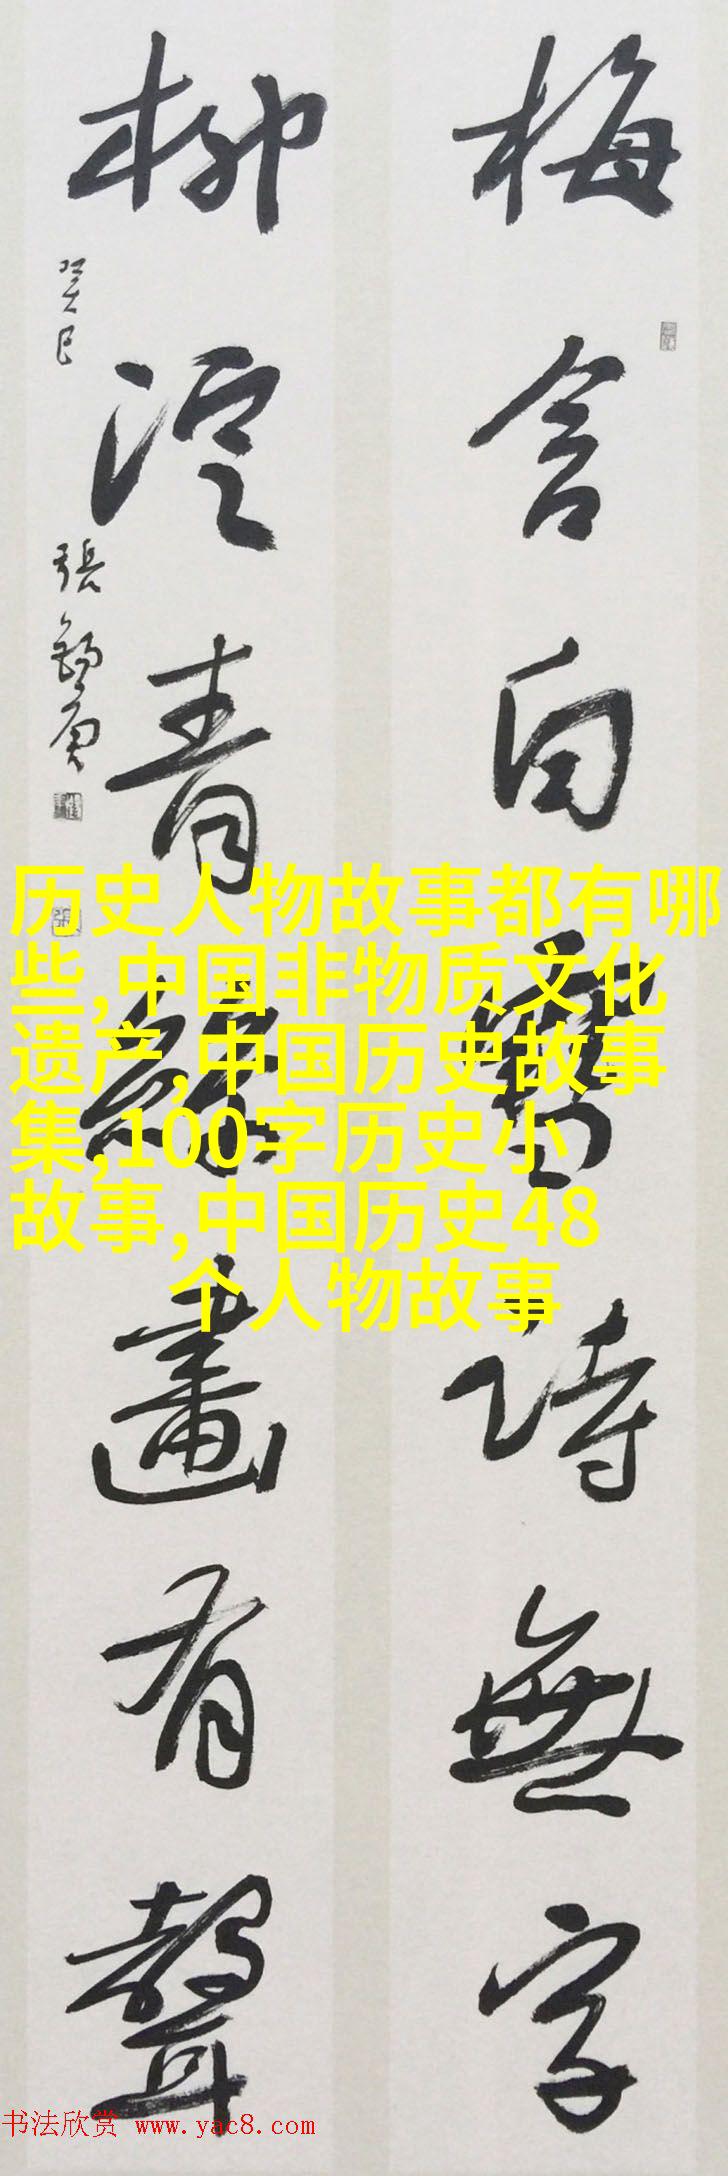 梅含白雪詩無字
柳浥青絲畫有聲
癸巳
張錦
历史人物故事都有哪
些,中国非物质文化
遗产,中国历史故事
集,100字历史小
故事,中国历史48
个人物故事
书法欣赏 www.yac8.com